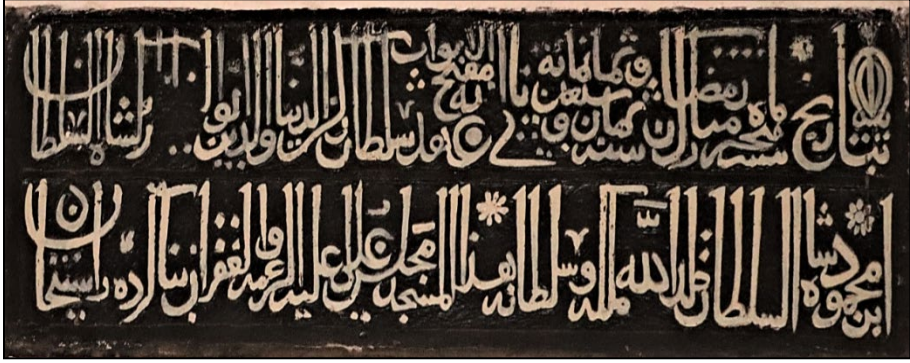 بتاريخ پنجم ماه مبارك رمضان سنه ثمان و سبعين و ثمانمائة يا مفتح الابواب في عهد سلطان ركن الدنيا والدين ابو شاه السلطان
ابن محمود شاه السلطان خلد الله ملكه و سلطانه هذا المسجد مجلس عليه الرحمة و الغفران بنا كرده